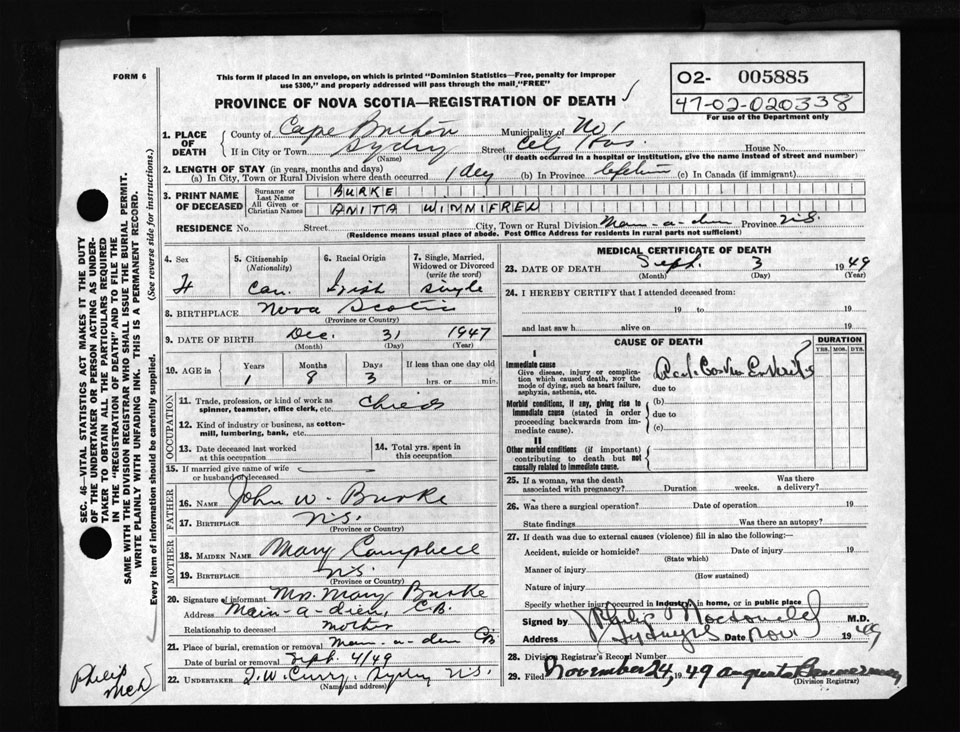 FORM 6
This form if placed in an envelope, on which is printed "Dominion Statistics—Free, penalty for improper
use $300," and properly addressed will pass through the mail, "FREE"
PROVINCE OF NOVA SCOTIA—REGISTRATION OF DEATH
O2- 005885
47-02-020338
For use of the Department only
1. PLACE OF DEATH
County of Cape Breton Municipality of No 1
If in City or Town Sydney Street City Hos. House No.
(Name) (If death occurred in a hospital or institution, give the name instead of street and number)
2. LENGTH OF STAY (in years, months and days)
(a) In City, Town or Rural Division where death occurred 1 day (b) In Province lifetime (c) In Canada (if immigrant)
3. PRINT NAME OF DECEASED
Surname or Last Name BURKE
All Given or Christian Names ANITA WINNIFRED
RESIDENCE No. Street City, Town or Rural Division Main-a-dieu Province N.S.
(Residence means usual place of abode. Post Office Address for residents in rural parts not sufficient)
4. Sex
5. Citizenship (Nationality)
6. Racial Origin
7. Single, Married, Widowed or Divorced (write the word)
F Can. Irish Single
8. BIRTHPLACE Nova Scotia
(Province or Country)
9. DATE OF BIRTH Dec. 31 1947
(Month) (Day) (Year)
10. AGE in Years Months Days If less than one day old
1 8 3 hrs. or min.
OCCUPATION
11. Trade, profession, or kind of work as spinner, teamster, office clerk, etc. Child
12. Kind of industry or business, as cotton-mill, lumbering, bank, etc.
13. Date deceased last worked at this occupation
14. Total yrs. spent in this occupation
15. If married give name of wife or husband of deceased
FATHER
16. NAME John W. Burke
17. BIRTHPLACE N.S.
(Province or Country)
MOTHER
18. MAIDEN NAME Mary Campbell
19. BIRTHPLACE N.S.
(Province or Country)
20. Signature of informant Mrs. Mary Burke
Address Main-a-dieu, C.B.
Relationship to deceased mother
21. Place of burial, cremation or removal Main-a-dieu CB
Date of burial or removal Sept. 4/49
22. UNDERTAKER J. W. Curry, Sydney N.S.
(Name and address)
MEDICAL CERTIFICATE OF DEATH
23. DATE OF DEATH Sept. 3 1949
(Month) (Day) (Year)
24. I HEREBY CERTIFY that I attended deceased from:
19 to 19
and last saw h alive on 19
CAUSE OF DEATH
DURATION
YRS. MOS. DYS.
I
Immediate cause
Give disease, injury or complication which caused death, NOT the mode of dying, such as heart failure, asphyxia, asthenia, etc.
due to
Morbid conditions, if any, giving rise to immediate cause (stated in order proceeding backwards from immediate cause).
(b)
due to
(c)
II
Other morbid conditions (if important) contributing to death but not causally related to immediate cause.
25. If a woman, was the death associated with pregnancy? Duration weeks. Was there a delivery?
26. Was there a surgical operation? Date of operation 19
State findings Was there an autopsy?
27. If death was due to external causes (violence) fill in also the following:—
Accident, suicide or homicide? Date of injury 19
(State which)
Manner of injury
(How sustained)
Nature of injury
Specify whether injury occurred in industry, in home, or in public place
Signed by M.D.
Address Sydney NS Date Nov 1949
28. Division Registrar's Record Number
29. Filed November 24, 1949 Augusta
(Division Registrar)
SEC. 46—VITAL STATISTICS ACT MAKES IT THE DUTY
OF THE UNDERTAKER OR PERSON ACTING AS UNDER-
TAKER TO OBTAIN ALL THE PARTICULARS REQUIRED
IN THE "REGISTRATION OF DEATH" AND TO FILE THE
SAME WITH THE DIVISION REGISTRAR WHO SHALL ISSUE THE BURIAL PERMIT.
WRITE PLAINLY WITH UNFADING INK. THIS IS A PERMANENT RECORD.
Every item of information should be carefully supplied. (See reverse side for instructions.)
Philip